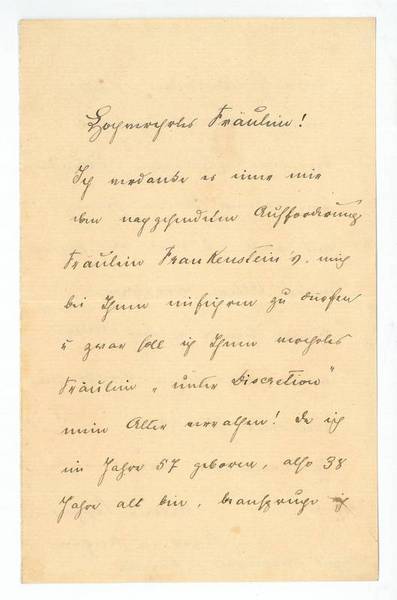 Hochverehrtes Fräulein!
Ich verdanke es einer mir
eben zugehenden Aufforderung
Fräulein Frankenstein's. mich
bei Ihnen einführen zu dürfen
u zwar soll ich Ihnen verehrtes
Fräulein „unter Discretion"
mein Alter verrathen! Da ich
im Jahre 57 geboren, also 38
Jahre alt bin, beanspruche ich